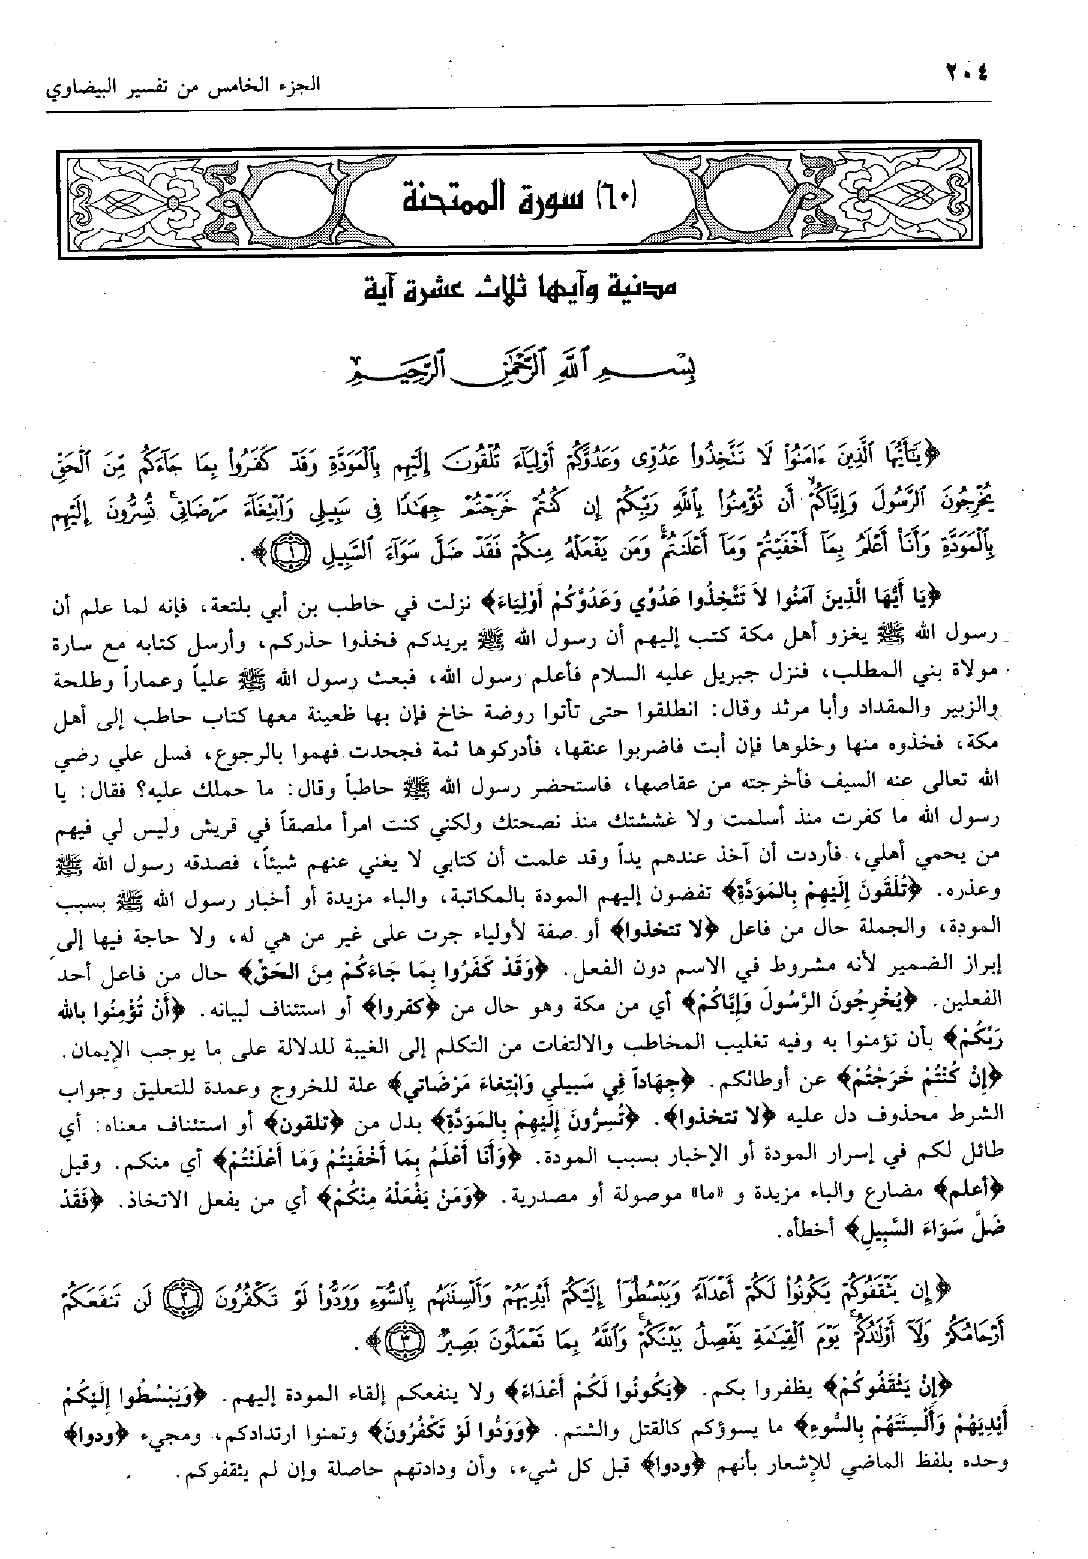 ٢٠٤
الجزء الخامس من تفسير البيضاوي
(٦٠) سورة الممتحنة
مدنية وآيها ثلاث عشرة آية
بِسْمِ اللَّهِ الرَّحْمَٰنِ الرَّحِيمِ
﴿يَٰٓأَيُّهَا ٱلَّذِينَ ءَامَنُوا۟ لَا تَتَّخِذُوا۟ عَدُوِّى وَعَدُوَّكُمْ أَوْلِيَآءَ تُلْقُونَ إِلَيْهِم بِٱلْمَوَدَّةِ وَقَدْ كَفَرُوا۟ بِمَا جَآءَكُم مِّنَ ٱلْحَقِّ
يُخْرِجُونَ ٱلرَّسُولَ وَإِيَّاكُمْ ۙ أَن تُؤْمِنُوا۟ بِٱللَّهِ رَبِّكُمْ إِن كُنتُمْ خَرَجْتُمْ جِهَٰدًا فِى سَبِيلِى وَٱبْتِغَآءَ مَرْضَاتِى ۚ تُسِرُّونَ إِلَيْهِم
بِٱلْمَوَدَّةِ وَأَنَا۠ أَعْلَمُ بِمَآ أَخْفَيْتُمْ وَمَآ أَعْلَنتُمْ ۚ وَمَن يَفْعَلْهُ مِنكُمْ فَقَدْ ضَلَّ سَوَآءَ ٱلسَّبِيلِ ١﴾.
﴿يَا أَيُّهَا الَّذِينَ آمَنُوا لاَ تَتَّخِذُوا عَدُوِّي وَعَدُوَّكُمْ أَوْلِيَاءَ﴾ نزلت في حاطب بن أبي بلتعة، فإنه لما علم أن
رسول الله ﷺ يغزو أهل مكة كتب إليهم أن رسول الله ﷺ يريدكم فخذوا حذركم، وأرسل كتابه مع سارة
مولاة بني المطلب، فنزل جبريل عليه السلام فأعلم رسول الله، فبعث رسول الله ﷺ علياً وعماراً وطلحة
والزبير والمقداد وأبا مرثد وقال: انطلقوا حتى تأتوا روضة خاخ فإن بها ظعينة معها كتاب حاطب إلى أهل
مكة، فخذوه منها وخلوها فإن أبت فاضربوا عنقها، فأدركوها ثمة فجحدت فهموا بالرجوع، فسل علي رضي
الله تعالى عنه السيف فأخرجته من عقاصها، فاستحضر رسول الله ﷺ حاطباً وقال: ما حملك عليه؟ فقال: يا
رسول الله ما كفرت منذ أسلمت ولا غششتك منذ نصحتك ولكني كنت امرأ ملصقاً في قريش وليس لي فيهم
من يحمي أهلي، فأردت أن آخذ عندهم يداً وقد علمت أن كتابي لا يغني عنهم شيئاً، فصدقه رسول الله ﷺ
وعذره. ﴿تُلْقُونَ إِلَيْهِمْ بِالمَوَدَّةِ﴾ تفضون إليهم المودة بالمكاتبة، والباء مزيدة أو أخبار رسول الله ﷺ بسبب
المودة، والجملة حال من فاعل ﴿لا تتخذوا﴾ أو صفة لأولياء جرت على غير من هي له، ولا حاجة فيها إلى
إبراز الضمير لأنه مشروط في الاسم دون الفعل. ﴿وَقَدْ كَفَرُوا بِمَا جَاءَكُمْ مِنَ الحَقِّ﴾ حال من فاعل أحد
الفعلين. ﴿يُخْرِجُونَ الرَّسُولَ وَإِيَّاكُمْ﴾ أي من مكة وهو حال من ﴿كفروا﴾ أو استئناف لبيانه. ﴿أَنْ تُؤْمِنُوا بالله
رَبِّكُمْ﴾ بأن تؤمنوا به وفيه تغليب المخاطب والالتفات من التكلم إلى الغيبة للدلالة على ما يوجب الإيمان.
﴿إِنْ كُنْتُمْ خَرَجْتُمْ﴾ عن أوطانكم. ﴿جِهَاداً فِي سَبِيلي وَابْتِغَاءَ مَرْضَاتي﴾ علة للخروج وعمدة للتعليق وجواب
الشرط محذوف دل عليه ﴿لا تتخذوا﴾. ﴿تُسِرُّونَ إِلَيْهِمْ بِالمَوَدَّةِ﴾ بدل من ﴿تلقون﴾ أو استئناف معناه: أي
طائل لكم في إسرار المودة أو الإخبار بسبب المودة. ﴿وَأَنَا أَعْلَمُ بِمَا أَخْفَيْتُمْ وَمَا أَعْلَنْتُمْ﴾ أي منكم. وقيل
﴿أعلم﴾ مضارع والباء مزيدة و «ما» موصولة أو مصدرية. ﴿وَمَنْ يَفْعَلْهُ مِنْكُمْ﴾ أي من يفعل الاتخاذ. ﴿فَقَدْ
ضَلَّ سَوَاءَ السَّبِيلِ﴾ أخطأه.
﴿إِن يَثْقَفُوكُمْ يَكُونُوا۟ لَكُمْ أَعْدَآءً وَيَبْسُطُوٓا۟ إِلَيْكُمْ أَيْدِيَهُمْ وَأَلْسِنَتَهُم بِٱلسُّوٓءِ وَوَدُّوا۟ لَوْ تَكْفُرُونَ ٢ لَن تَنفَعَكُمْ
أَرْحَامُكُمْ وَلَآ أَوْلَٰدُكُمْ ۚ يَوْمَ ٱلْقِيَٰمَةِ يَفْصِلُ بَيْنَكُمْ ۚ وَٱللَّهُ بِمَا تَعْمَلُونَ بَصِيرٌ ٣﴾.
﴿إِنْ يَثْقَفُوكُمْ﴾ يظفروا بكم. ﴿يَكُونُوا لَكُمْ أَعْدَاءً﴾ ولا ينفعكم إلقاء المودة إليهم. ﴿وَيَبْسُطُوا إِلَيْكُمْ
أَيْدِيَهُمْ وَأَلْسِنَتَهُمْ بِالسُّوءِ﴾ ما يسوؤكم كالقتل والشتم. ﴿وَوَدُّوا لَوْ تَكْفُرُونَ﴾ وتمنوا ارتدادكم، ومجيء ﴿ودوا﴾
وحده بلفظ الماضي للإشعار بأنهم ﴿ودوا﴾ قبل كل شيء، وأن ودادتهم حاصلة وإن لم يثقفوكم.